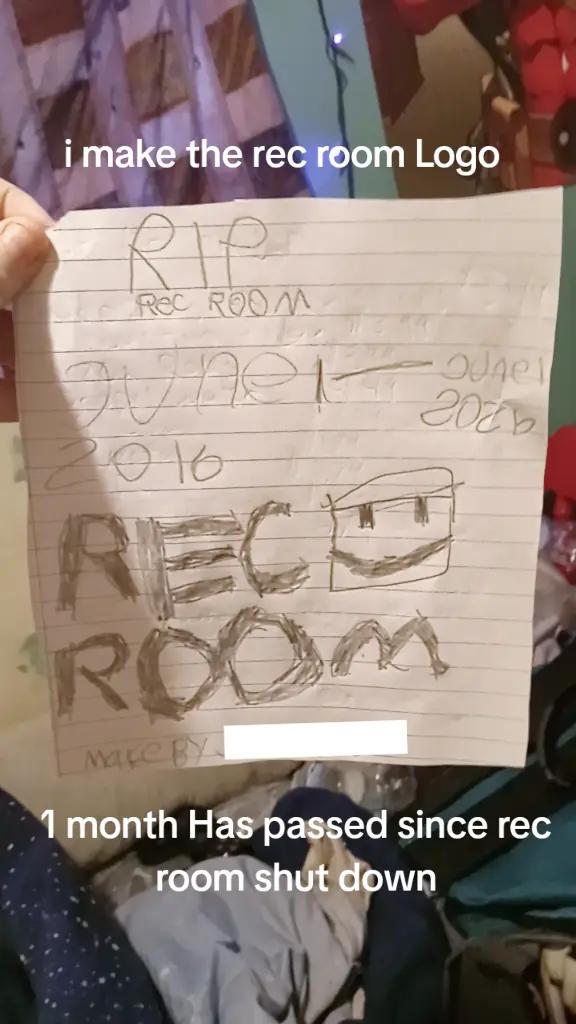 i make the rec room Logo
RIP
Rec ROOM
June 1 — June 1
2016 2026
REC
ROOM
Make BY
1 month Has passed since rec
room shut down